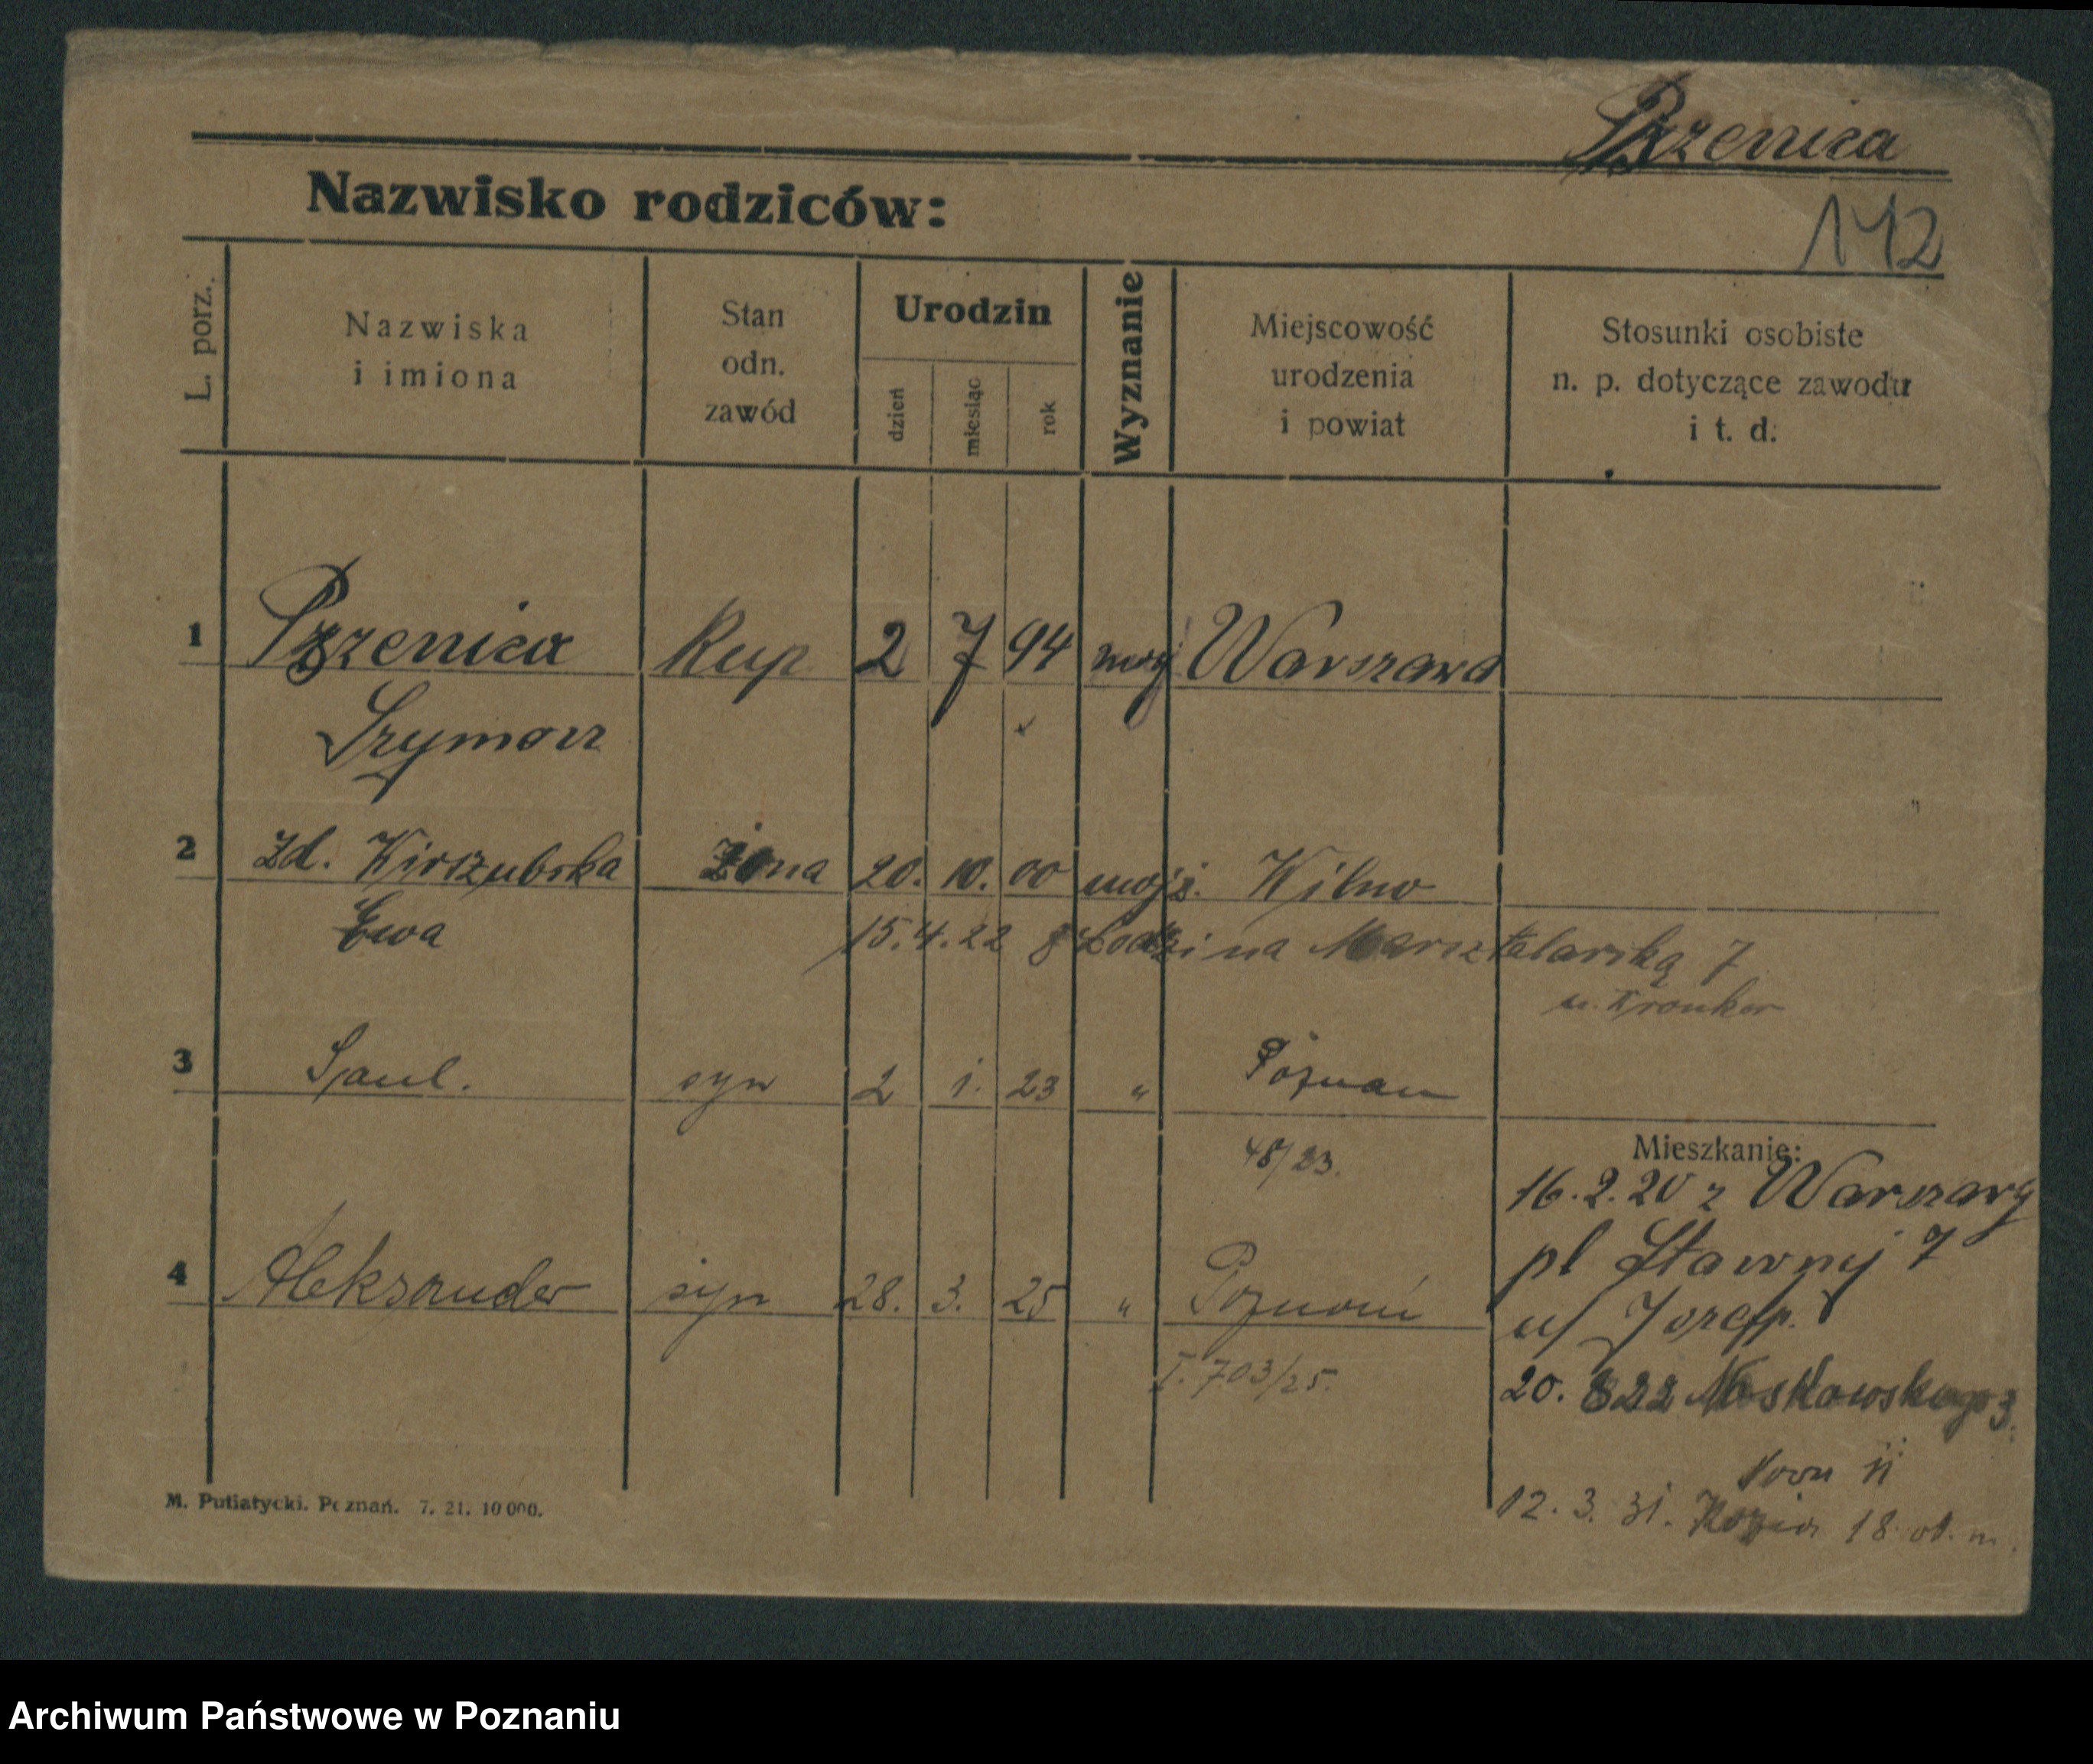 Pszenica
Nazwisko rodziców:
142
L. porz.
Nazwiska
i imiona
Stan
odn.
zawód
Urodzin
dzień
miesiąc
rok
Wyznanie
Miejscowość
urodzenia
i powiat
Stosunki osobiste
n. p. dotyczące zawodu
i t. d.
1 Pszenica Kup 2 7 94 Warszawa
Szymon
2 zd. Kirszubska żona 20. 10. 00 mojż. Wilno
Ewa 15.4.22 z Łodzi na Marsztalarską 7
u. Kronker
3 Saul. syn 2 1. 23 " Poznań
48/23.
Mieszkanie:
16.2.20 z Warszawy
pl Stawnej 7
u/ Jozefp.
4 Aleksander syn 28. 3. 25 " Poznań
I. 703/25.
20. 8 22 Moskowskiego 3.
12. 3. 31. Kozia 18 ob. m.
M. Putiatycki. Poznań. 7. 21. 10 000.
Archiwum Państwowe w Poznaniu